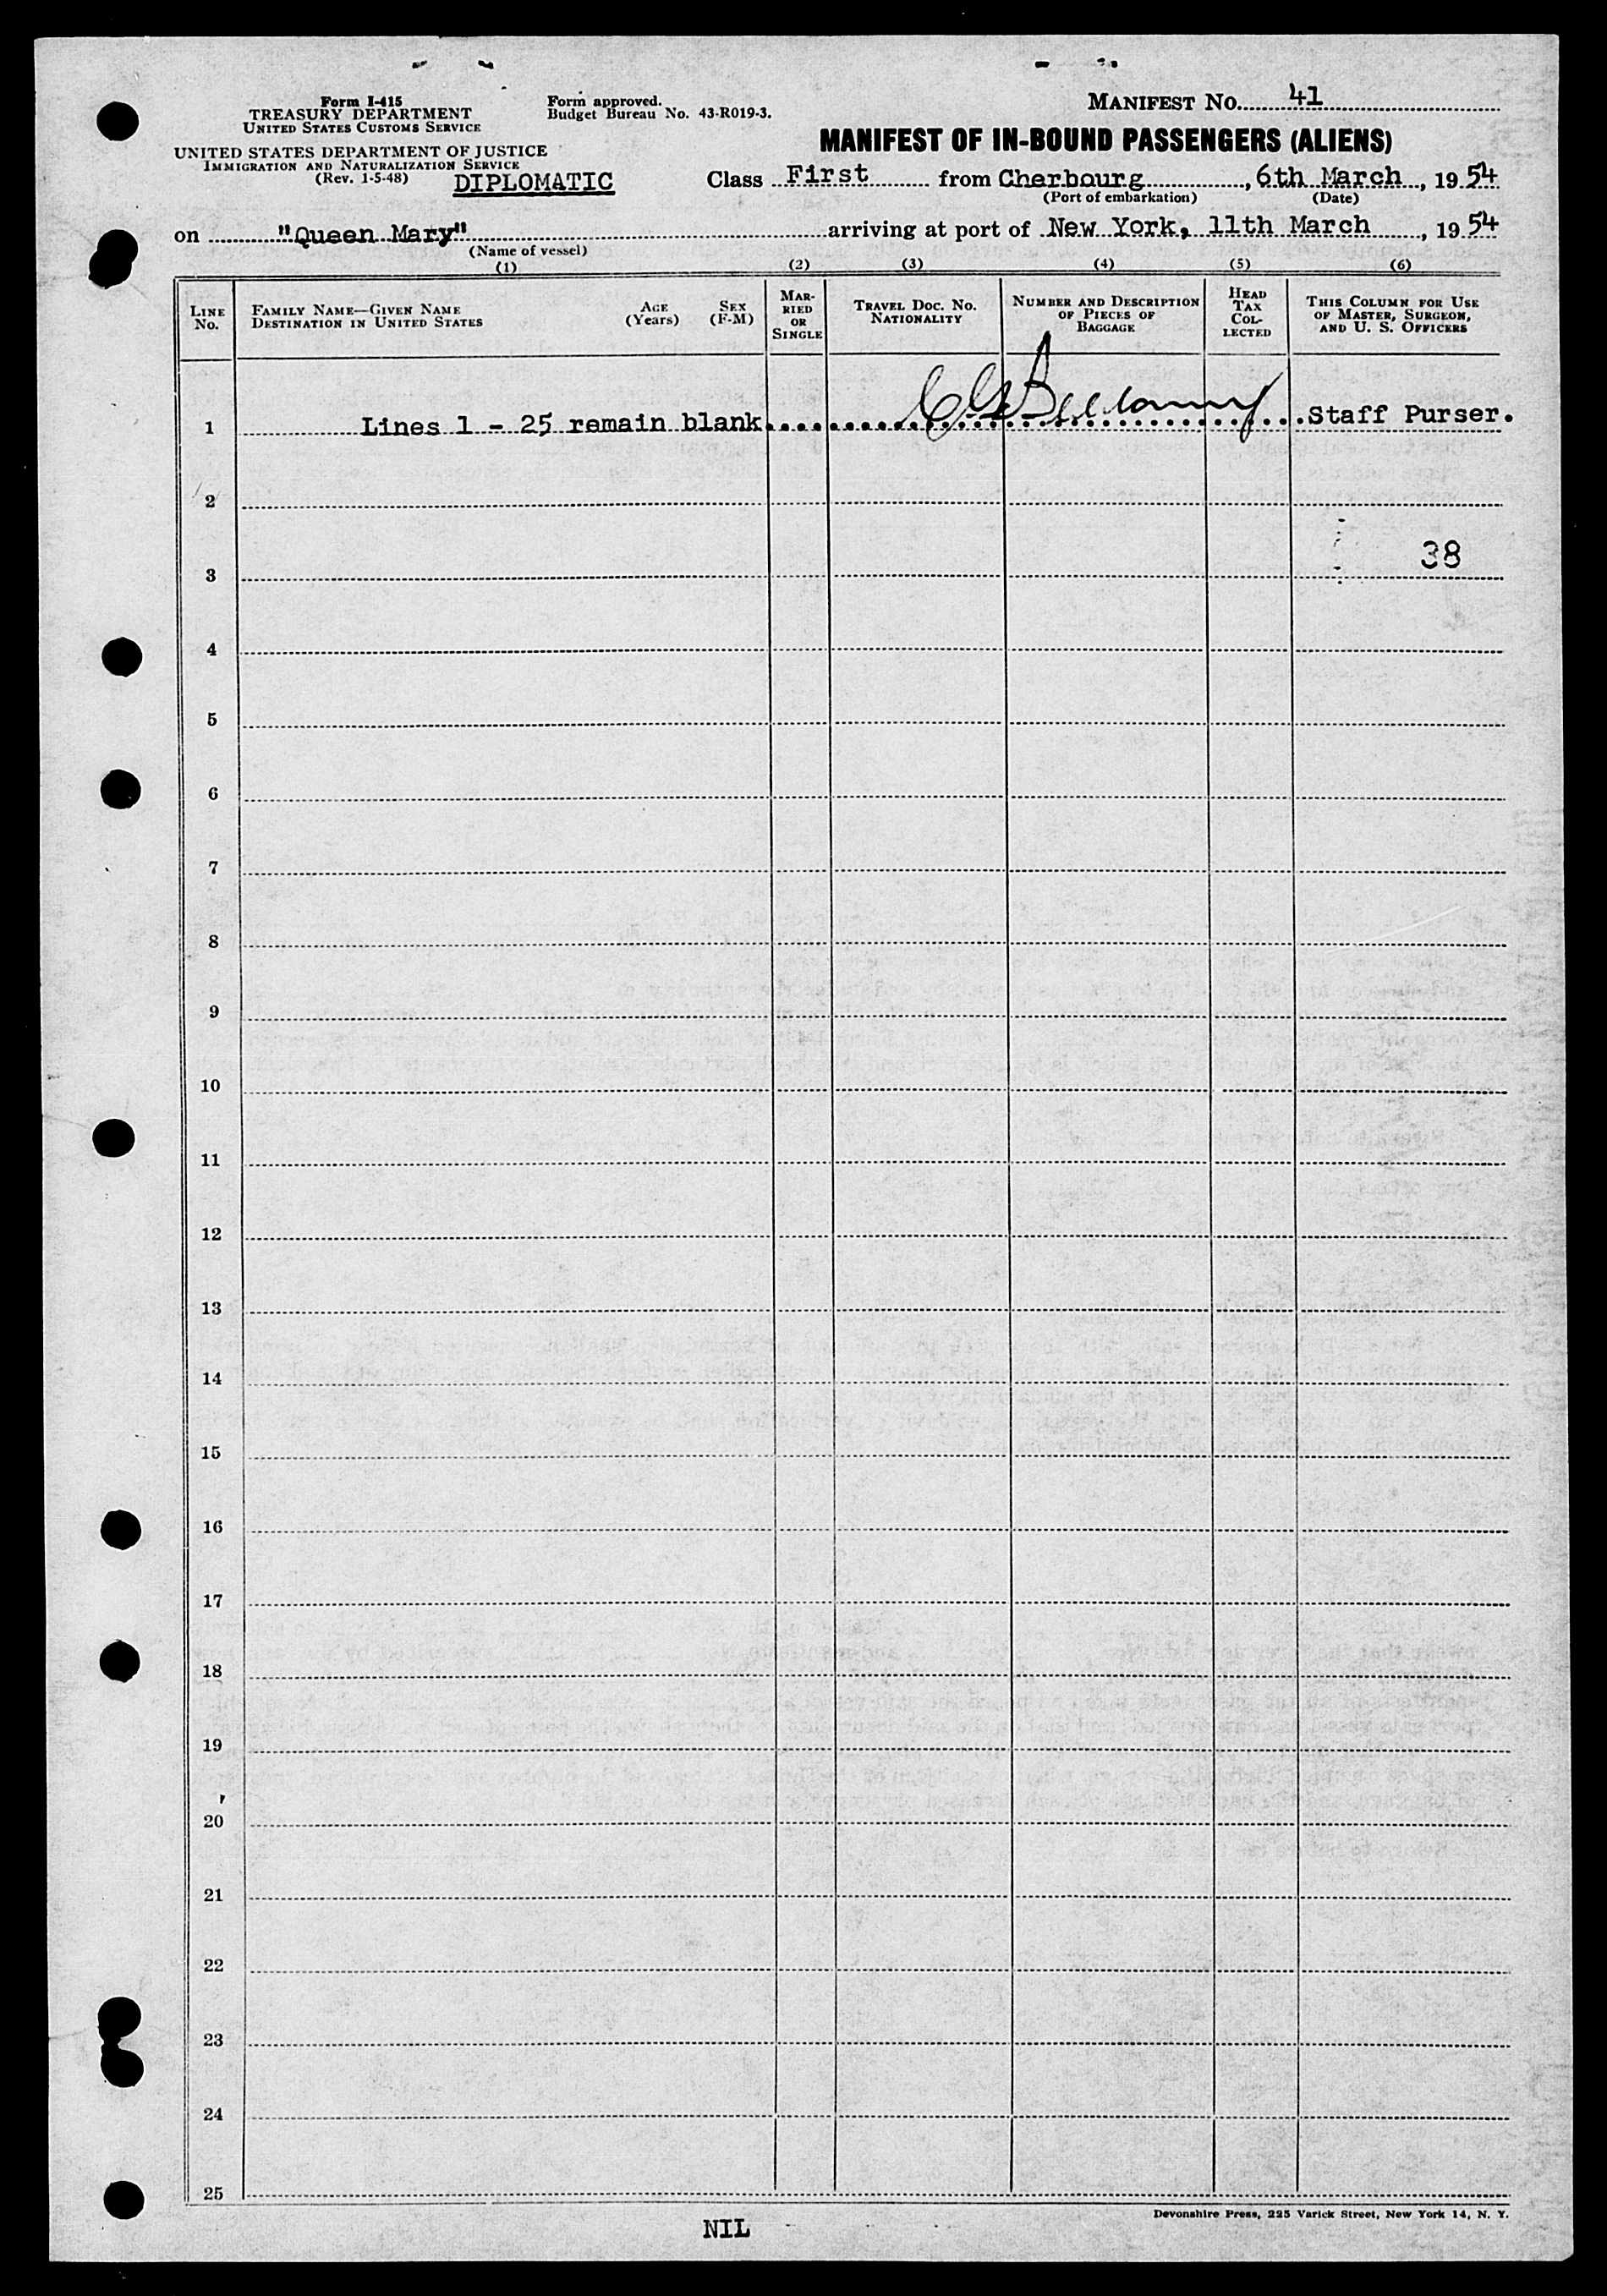 Form I-415
TREASURY DEPARTMENT
UNITED STATES CUSTOMS SERVICE
UNITED STATES DEPARTMENT OF JUSTICE
IMMIGRATION AND NATURALIZATION SERVICE
(Rev. 1-5-48) DIPLOMATIC
Form approved.
Budget Bureau No. 43-R019-3.
MANIFEST NO. 41
MANIFEST OF IN-BOUND PASSENGERS (ALIENS)
Class First from Cherbourg, 6th March, 1954
(Port of embarkation) (Date)
on "Queen Mary" arriving at port of New York, 11th March, 1954
(Name of vessel)
(1) (2) (3) (4) (5) (6)
LINE No.
FAMILY NAME—GIVEN NAME
DESTINATION IN UNITED STATES
AGE (Years)
SEX (F-M)
MARRIED OR SINGLE
TRAVEL DOC. NO.
NATIONALITY
NUMBER AND DESCRIPTION OF PIECES OF BAGGAGE
HEAD TAX COLLECTED
THIS COLUMN FOR USE OF MASTER, SURGEON, AND U. S. OFFICERS
1 Lines 1 - 25 remain blank Staff Purser.
2
38
3
4
5
6
7
8
9
10
11
12
13
14
15
16
17
18
19
20
21
22
23
24
25
Devonshire Press, 225 Varick Street, New York 14, N. Y.
NIL